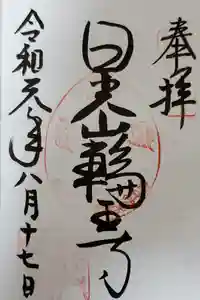 奉拝
日光山輪王寺
令和元年八月十七日